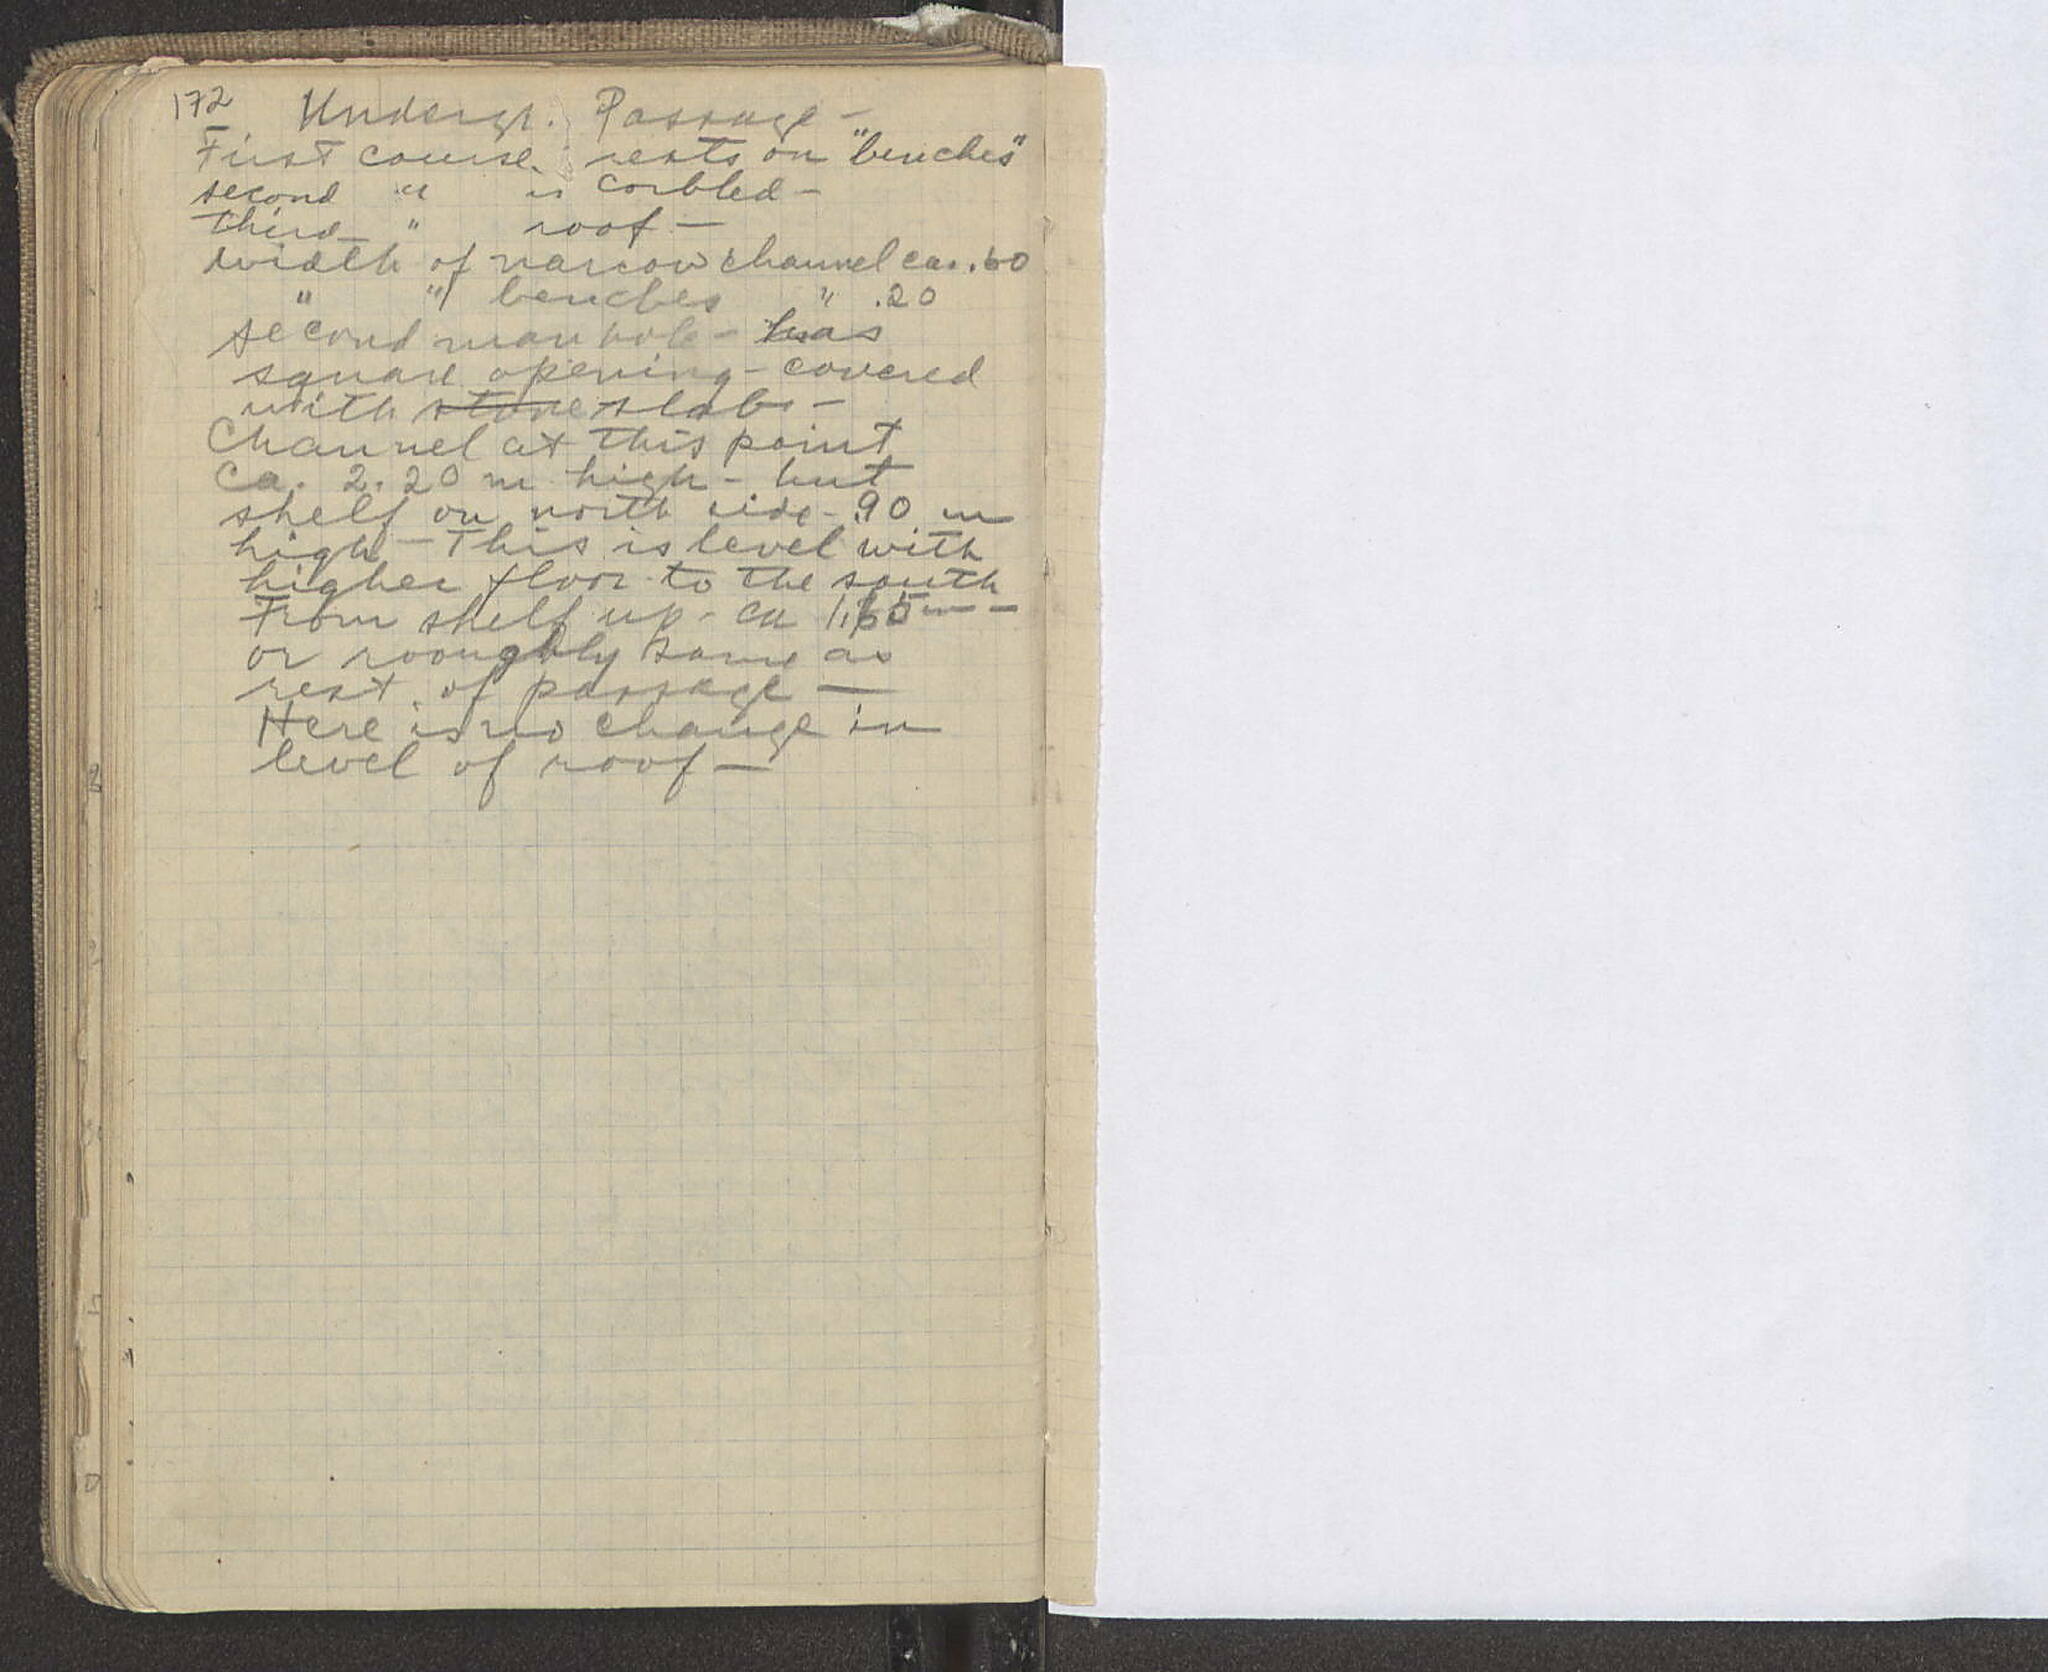 172 Undergr. Passage -
First course. rests on "benches"
second " is corbled -
third " roof -
width of narrow channel ca. .60
" " benches " .20
second manhole - has
square opening - covered
with stone slabs -
Channel at this point
ca. 2.20 m high - but
shelf on north side - .90 m
high - This is level with
higher floor to the south
From shelf up - ca m -
or rooughly same as
rest of passage -
Here is no change in
level of roof -